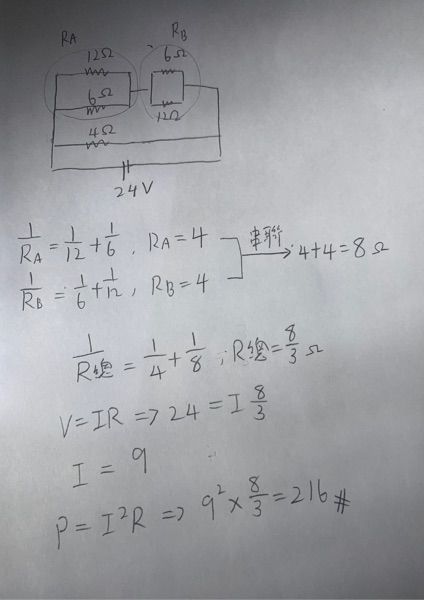 RA RB
12Ω 6Ω
6Ω
12Ω
4Ω
24V
1/RA = 1/12 + 1/6 , RA = 4
串聯 4+4=8Ω
1/RB = 1/6 + 1/12 , RB = 4
1/R總 = 1/4 + 1/8 ; R總 = 8/3 Ω
V=IR => 24 = I 8/3
I = 9
P = I²R => 9² × 8/3 = 216 #